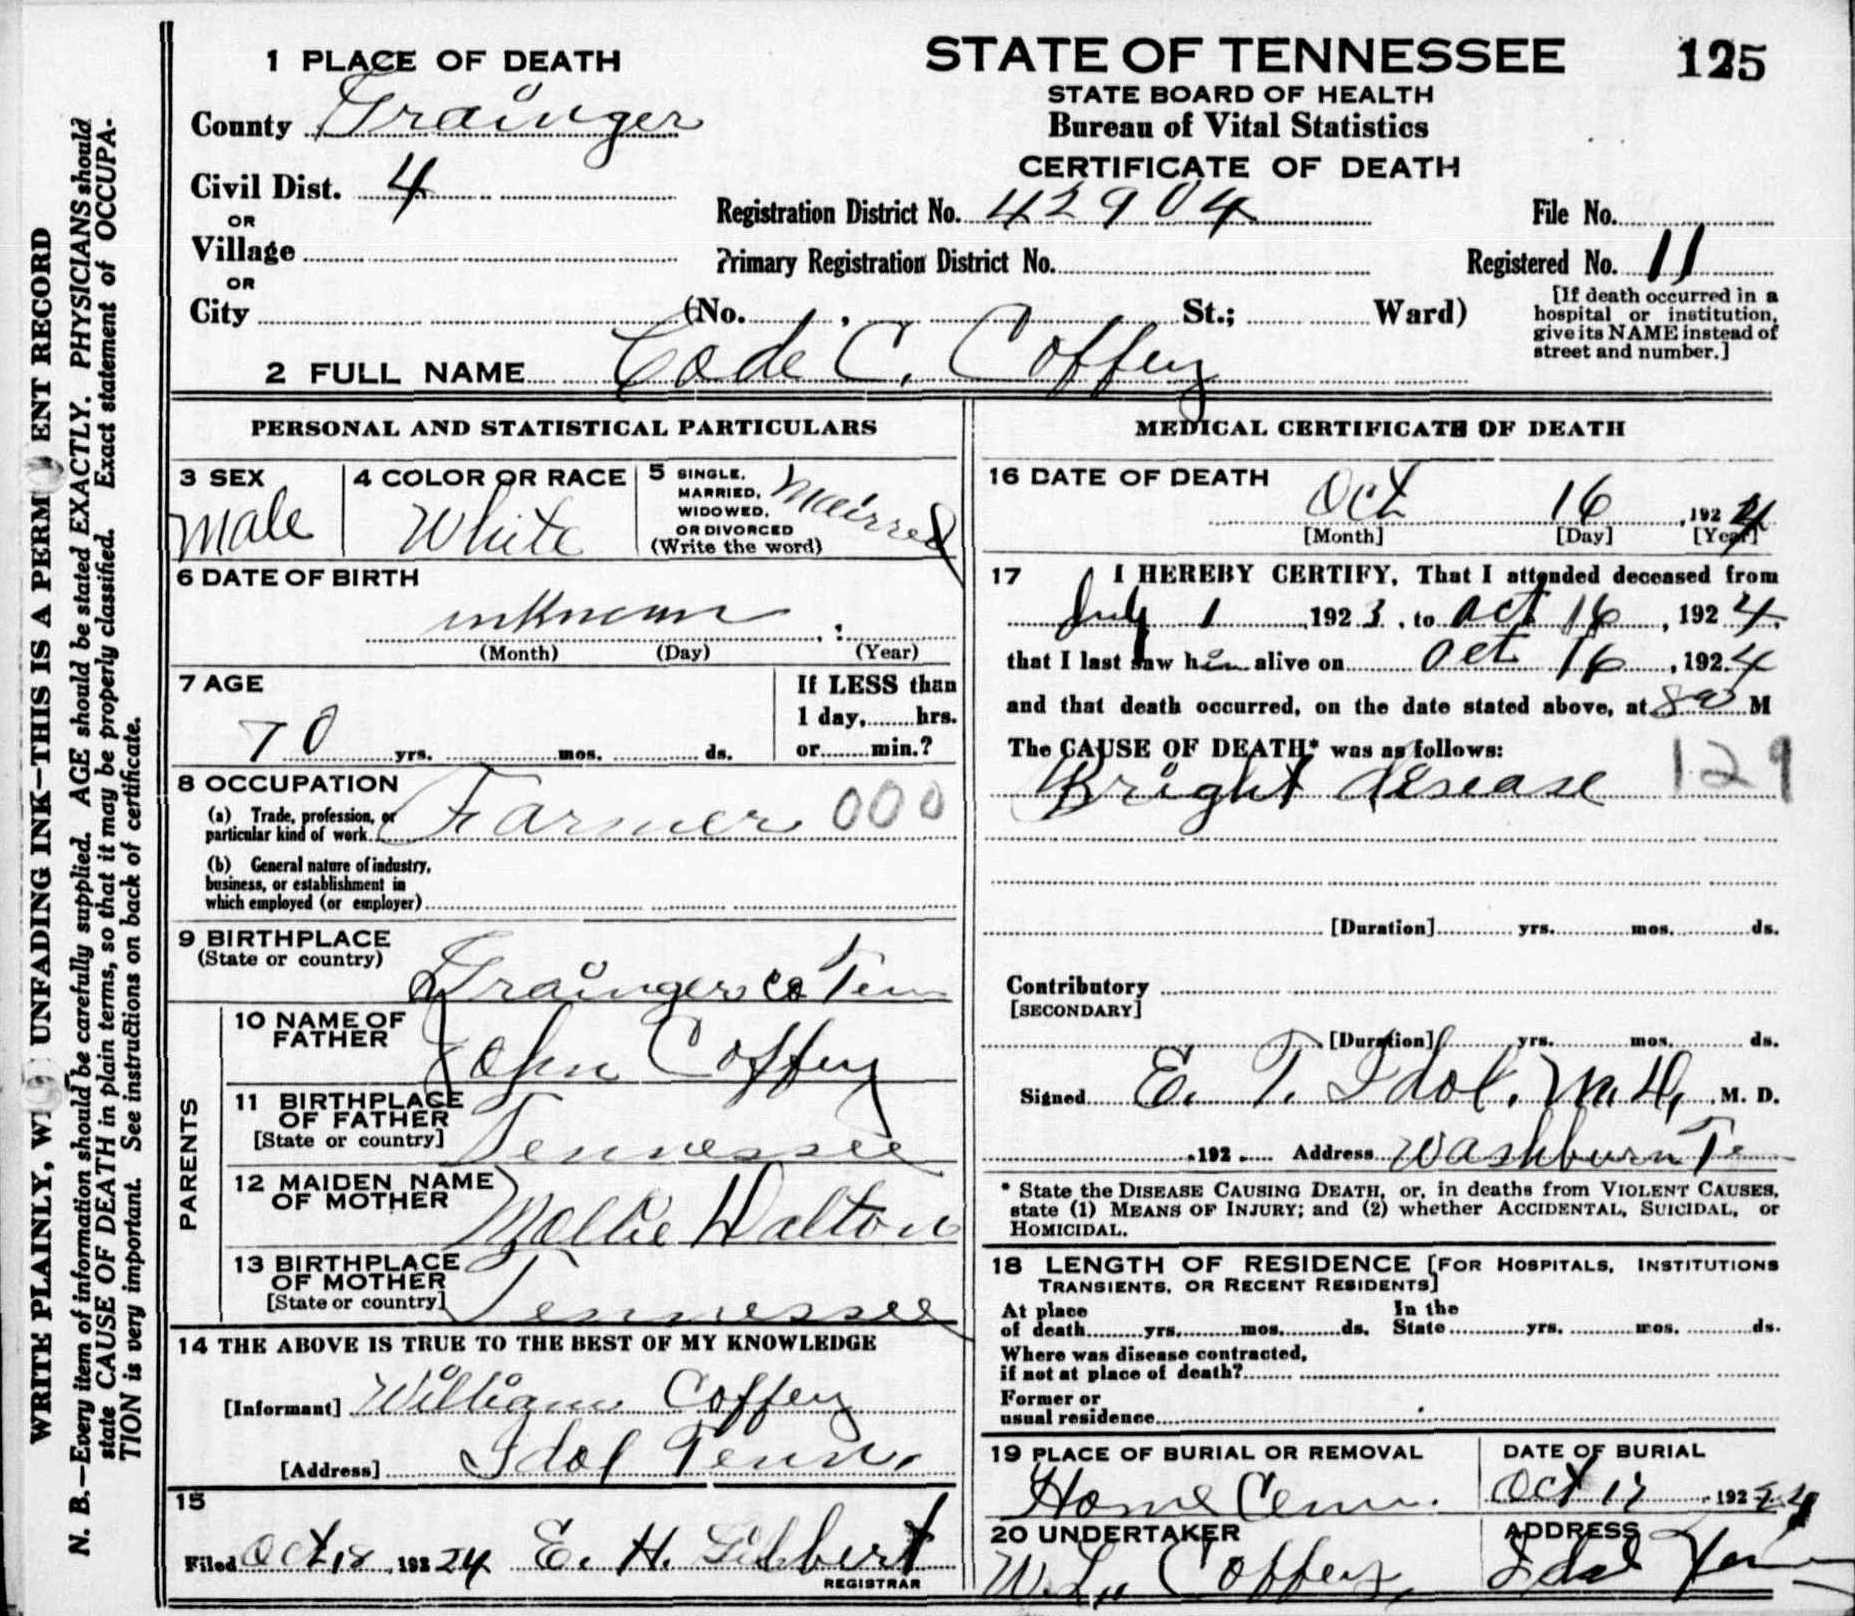 WRITE PLAINLY, WI UNFADING INK—THIS IS A PERM ENT RECORD
N. B.—Every item of information should be carefully supplied. AGE should be stated EXACTLY. PHYSICIANS should
state CAUSE OF DEATH in plain terms, so that it may be properly classified. Exact statement of OCCUPA-
TION is very important. See instructions on back of certificate.
1 PLACE OF DEATH
County Grainger
Civil Dist. 4
OR
Village
OR
City (No. , St.; Ward)
STATE OF TENNESSEE
STATE BOARD OF HEALTH
Bureau of Vital Statistics
CERTIFICATE OF DEATH
125
Registration District No. 42904
File No.
Primary Registration District No.
Registered No. 11
[If death occurred in a
hospital or institution,
give its NAME instead of
street and number.]
2 FULL NAME Code C. Coffey
PERSONAL AND STATISTICAL PARTICULARS
3 SEX
Male
4 COLOR OR RACE
White
5 SINGLE,
MARRIED,
WIDOWED,
OR DIVORCED
(Write the word)
Mairred
6 DATE OF BIRTH
unknown
(Month) (Day) (Year)
7 AGE
70 yrs. mos. ds.
If LESS than
1 day, hrs.
or min.?
8 OCCUPATION
(a) Trade, profession, or
particular kind of work Farmer 000
(b) General nature of industry,
business, or establishment in
which employed (or employer)
9 BIRTHPLACE
(State or country)
Grainger Co Tenn
PARENTS
10 NAME OF
FATHER
John Coffey
11 BIRTHPLACE
OF FATHER
[State or country]
Tennessee
12 MAIDEN NAME
OF MOTHER
Mollie Dalton
13 BIRTHPLACE
OF MOTHER
[State or country]
Tennessee
14 THE ABOVE IS TRUE TO THE BEST OF MY KNOWLEDGE
[Informant] William Coffey
[Address] Idol Tenn.
15
Filed Oct 18 192 24 E. H. Gilbert
REGISTRAR
MEDICAL CERTIFICATE OF DEATH
16 DATE OF DEATH
Oct 16, 1924
[Month] [Day] [Year]
17 I HEREBY CERTIFY, That I attended deceased from
July 1, 1923, to Oct 16, 1924,
that I last saw him alive on Oct 16, 1924
and that death occurred, on the date stated above, at M
The CAUSE OF DEATH* was as follows:
Bright disease 129
[Duration] yrs. mos. ds.
Contributory
[SECONDARY]
[Duration] yrs. mos. ds.
Signed E. T. Idol, M.D., M. D.
, 192 Address Washburn Te
* State the DISEASE CAUSING DEATH, or, in deaths from VIOLENT CAUSES,
state (1) MEANS OF INJURY; and (2) whether ACCIDENTAL, SUICIDAL, or
HOMICIDAL.
18 LENGTH OF RESIDENCE [FOR HOSPITALS, INSTITUTIONS
TRANSIENTS, OR RECENT RESIDENTS]
At place In the
of death yrs. mos. ds. State yrs. mos. ds.
Where was disease contracted,
if not at place of death?
Former or
usual residence
19 PLACE OF BURIAL OR REMOVAL
Home Cem.
DATE OF BURIAL
Oct 17, 192 24
20 UNDERTAKER
W. L. Coffey,
ADDRESS
Idol Tenn